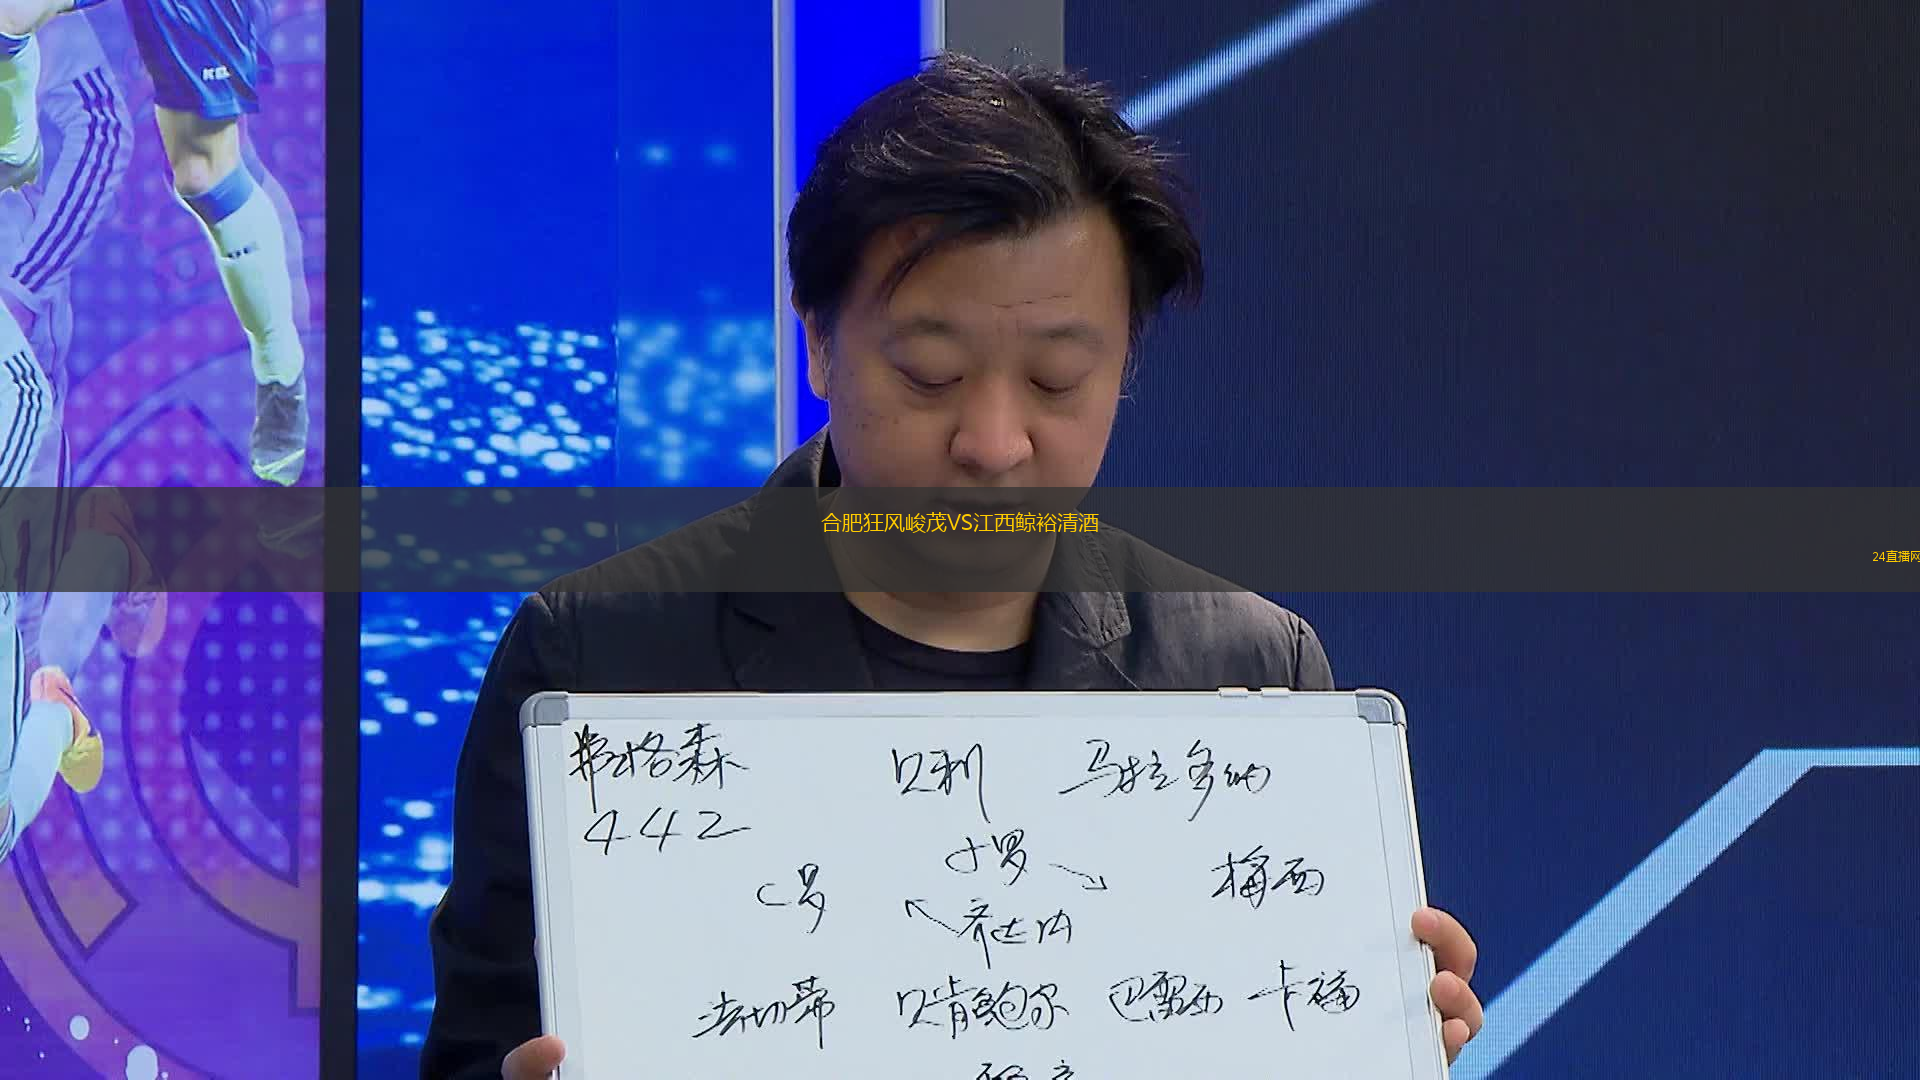 KEL
合肥狂风峻茂VS江西鲸裕清酒
24直播网
弗格森 贝利 马拉多纳
442
小罗
C罗 梅西
齐达内
法切蒂 贝肯鲍尔 巴雷西 卡福